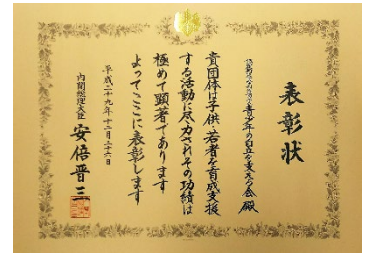 表彰状
青少年の自立を支える会 殿
貴団体は子供・若者を育成支援
する活動に尽力されその功績は
極めて顕著であります
よってここに表彰します
平成二十九年十一月二十六日
内閣総理大臣 安倍晋三